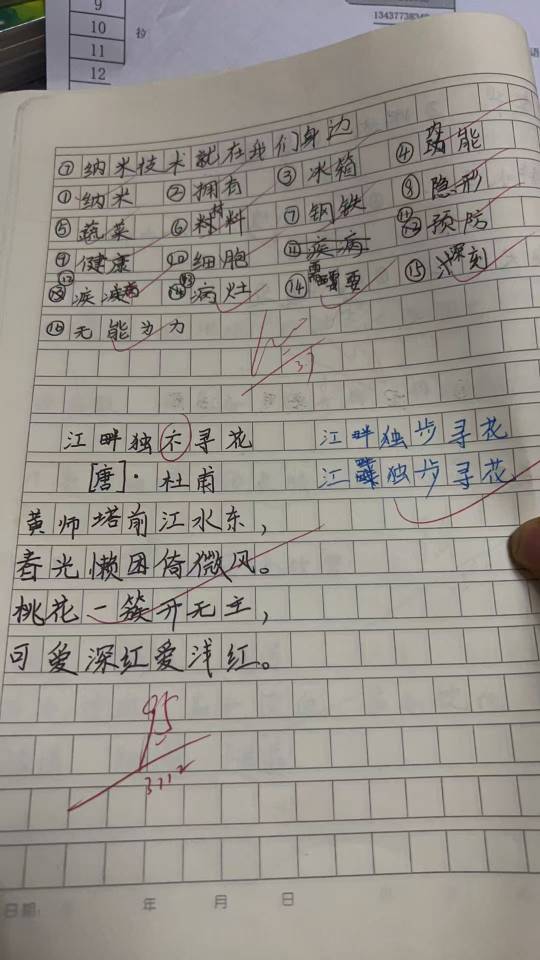 9
10
11
12
⑦ 纳米技术就在我们身边
① 纳米 ② 拥有 ③ 冰箱 ④ 功能
⑤ 蔬菜 ⑥ 材料 ⑦ 钢铁 ⑧ 隐形
⑨ 健康 ⑩ 细胞 ⑪ 疾病 ⑫ 预防
⑬ 疾病 病灶 ⑭ 需要 ⑮ 深刻
⑯ 无能为力
江畔独不寻花 江畔独步寻花
[唐]·杜甫 江畔独步寻花
黄师塔前江水东，
春光懒困倚微风。
桃花一簇开无主，
可爱深红爱浅红。
95
日期: 年 月 日